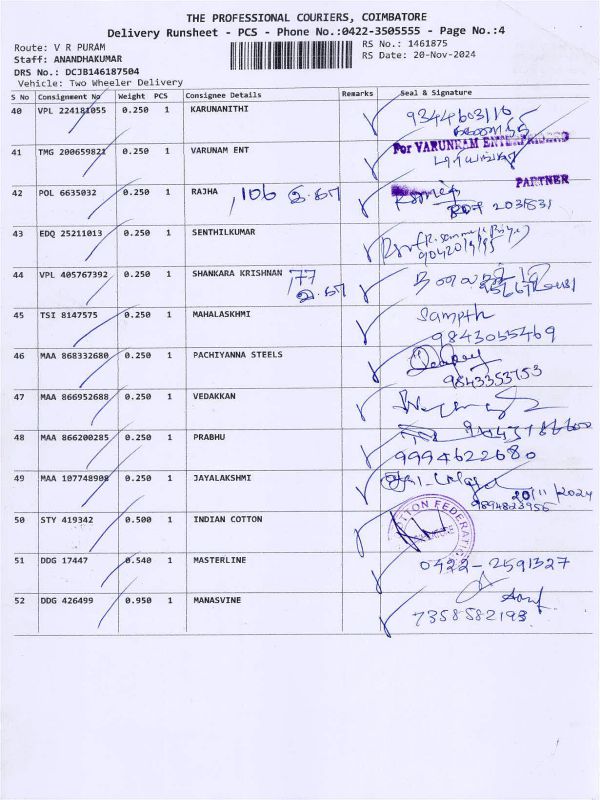 THE PROFESSIONAL COURIERS, COIMBATORE
Delivery Runsheet - PCS - Phone No.:0422-3505555 - Page No.:4
Route: V R PURAM
RS No.: 1461875
Staff: ANANDHAKUMAR
RS Date: 20-Nov-2024
DRS No.: DCJB146187504
Vehicle: Two Wheeler Delivery
S No Consignment No Weight PCS Consignee Details Remarks Seal & Signature
40 VPL 224181055 0.250 1 KARUNANITHI 9344603116
41 TMG 200659821 0.250 1 VARUNAM ENT For VARUNKAM ENTERPRISES
PARTNER
42 POL 6635032 0.250 1 RAJHA , 106 உ.கா
43 EDQ 25211013 0.250 1 SENTHILKUMAR
44 VPL 405767392 0.250 1 SHANKARA KRISHNAN 177
45 TSI 8147575 0.250 1 MAHALASKHMI Sampth
9843055469
46 MAA 868332680 0.250 1 PACHIYANNA STEELS
9843353753
47 MAA 866952688 0.250 1 VEDAKKAN
48 MAA 866200285 0.250 1 PRABHU
9994622680
49 MAA 107748908 0.250 1 JAYALAKSHMI
20/11/2024
9894823956
50 STY 419342 0.500 1 INDIAN COTTON COTTON FEDERATION
51 DDG 17447 0.540 1 MASTERLINE 0422-2591327
52 DDG 426499 0.950 1 MANASVINE
7358582193